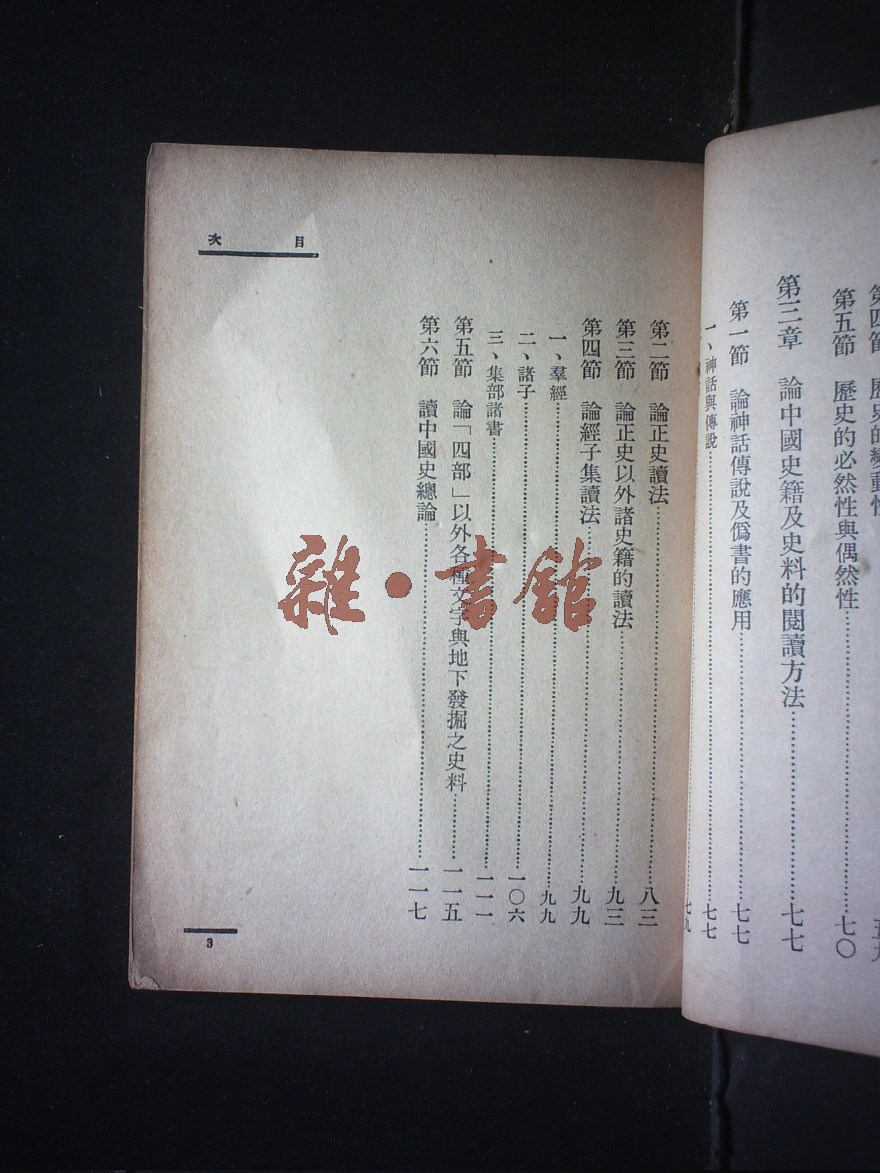 第四節 歷史的變動性
第五節 歷史的必然性與偶然性……七〇
第三章 論中國史籍及史料的閱讀方法……七七
第一節 論神話傳說及僞書的應用……七七
一、神話與傳說……七七
七九
目次
第二節 論正史讀法……八三
第三節 論正史以外諸史籍的讀法……九三
第四節 論經子集讀法……九九
一、羣經……九九
二、諸子……一〇六
三、集部諸書……一一一
第五節 論「四部」以外各種文字與地下發掘之史料……一一五
第六節 讀中國史總論……一一七
3
雜·書館